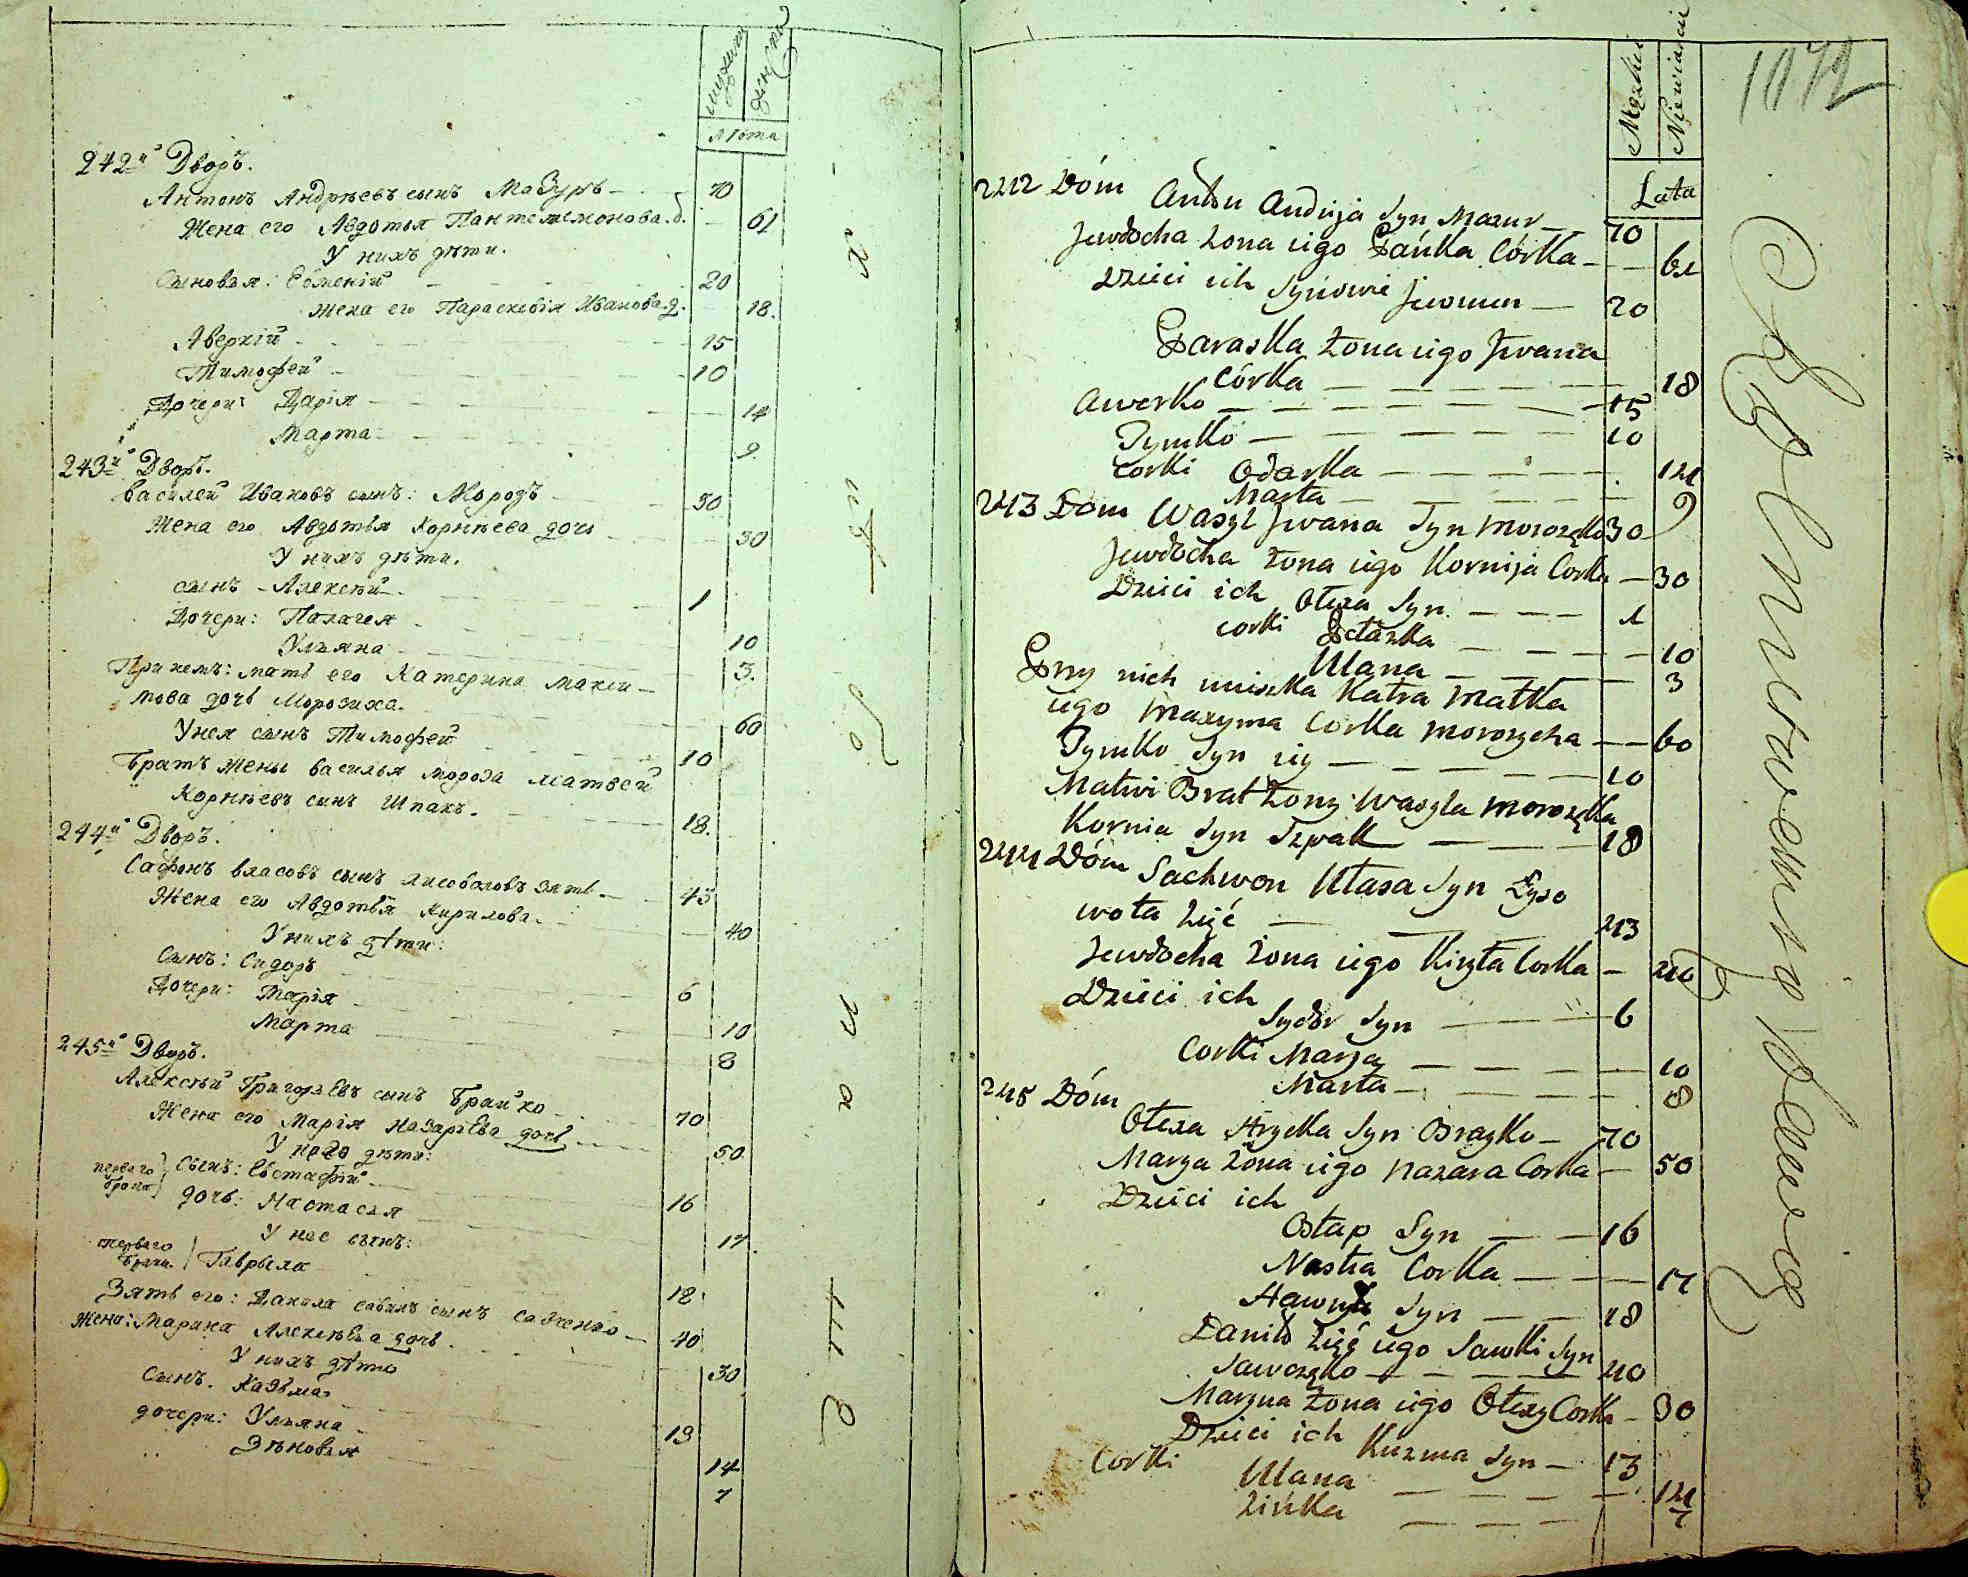 мужеска
женска
Лѣта
242й Дворъ.
Антонъ Андрѣевъ сынъ Мазуръ — 70
Жена его Авдотья Пантелемонова д. — 61
У нихъ дѣти.
Сыновья: Евмений — 20
жена его Параскевія Иванова д. 18.
Аверкій — 15
Тимофей — 10
Дочери: Дарія — 14
Марта — 9
243й Дворъ.
Василей Ивановъ сынъ: Морозъ — 30
Жена его Авдотья Корнѣева дочь — 30
У нихъ дѣти.
сынъ - Алексѣй — 1
Дочери: Палагея — 10
Ульяна — 3.
При немъ: мать его Катерина Макси-
мова дочь Морозиха. — 60
У нея сынъ Тимофей — 10
Братъ жены Василья Мороза Матвей
Корнѣевъ сынъ Шпакъ. — 18.
244й Дворъ.
Сафонъ Власовъ сынъ Лисоволовъ зять — 43
Жена его Авдотья Кирилова — 40
У нихъ дѣти:
Сынъ: Сидоръ — 6
Дочери: Марія — 10
Марта — 8
245й Дворъ.
Алексѣй Григорьевъ сынъ Брайко — 70
Жена его Марія Назарьева дочь — 50
У него дѣти:
первого брака Сынъ: Евстафій — 16
дочь: Настасья — 17.
У нее сынъ:
первого брака Гаврыла — 18
Зять его: Данила Савинъ сынъ Савченко — 40
Жена: Марина Алексѣева дочь — 30
У нихъ дѣти
Сынъ. Казьма — 13
дочери: Ульяна — 14
Зѣновья — 7
1072
Męzkiei
Niewiasciei
Lata
242 Dóm Anton Andrija Syn Mazur — 70
Jewdocha żona iego Pańka Córka — 61
Dzieci ich Synowie Jewmen — 20
Paraska żona iego Iwana
Córka — 18
Awerko — 15
Tymko — 10
Corki Odarka — 14
Marta — 9
243 Dom Wasyl Iwana Syn Morozęko 30
Jewdocha żona iego Kornija Corka — 30
Dzieci ich Ołexa Syn — 1
corki Pełaszka — 10
Ulana — 3
Przy nich mieszka Katra Matka
iego Maxyma Corka Morozycha — 60
Tymko Syn iey — 10
Matwi Brat żony Wasyla Morozęka
Kornia Syn Szpak — 18
244 Dóm Sachwon Ułasa Syn Łyso
woła Zięć — 43
Jewdocha żona iego Kiryła Corka — 40
Dzieci ich
Sydor Syn — 6
Corki Marya — 10
Marta — 8
245 Dóm
Ołexa Hrycka Syn Brayko — 70
Marya żona iego Nazara Corka — 50
Dzieci ich
Ostap Syn — 16
Nastia Corka — 17
Hawryło Syn — 18
Daniło Zięć iego Sawki Syn
Sawczęko — 40
Maryna żona iego Ołexy Corka — 30
Dzieci ich Kuzma Syn — 13
Corki Ulana — 14
Zińka — 7